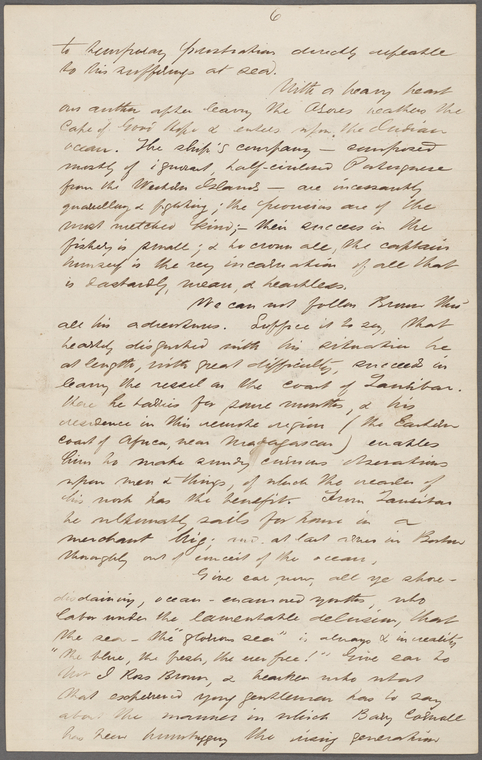 6
to temporary prostration directly referable
to his sufferings at sea.
With a heavy heart
our author after leaving the Azores weathers the
Cape of Good Hope & enters upon the Indian
ocean. The ship's company — composed
mostly of ignorant, half-civilized Portuguese
from the Western Islands — are incessantly
quarelling & fighting; the provisions are of the
most wretched kind; their success in the
fishery is small; & to crown all, the captain
himself is the very incarnation of all that
is dastardly, mean, & heartless.
We can not follow Brown thro'
all his adventures. Suffice it to say, that
heartily disgusted with his situation he
at length, with great difficulty, succeeds in
leaving the vessel on the coast of Zanzibar.
Here he tarries for some months, & his
residence in this remote region (the Eastern
coast of Africa, near Madagascar) enables
him to make sundry curious observations
upon men & things, of which the reader of
his work has the benefit. From Zanzibar
he ultimately sails for home in a
merchant brig; and at last arrives in Boston
thoroughly out of conceit of the ocean.
Give ear, now, all ye shore-
disdaining, ocean-enamored youths, who
labor under the lamentable delusion, that
the sea — the "glorious sea" is always & in reality
"the blue, the fresh, the ever free!" Give ear to
J Ross Brown, & hearken unto what
that experienced young gentleman has to say
about the manner in which Barry Cornwall
has been humbugging the rising generation